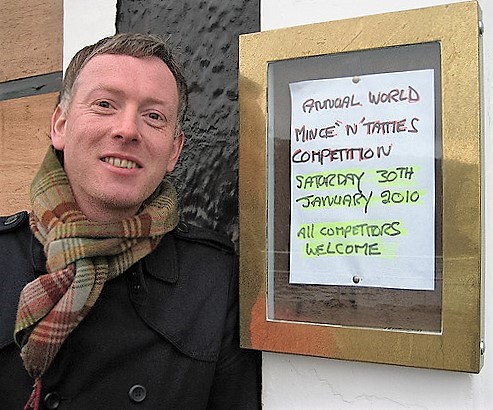 ANNUAL WORLD
MINCE 'N' TATTIES
COMPETITION
SATURDAY 30TH
JANUARY 2010
All COMPETITORS
WELCOME